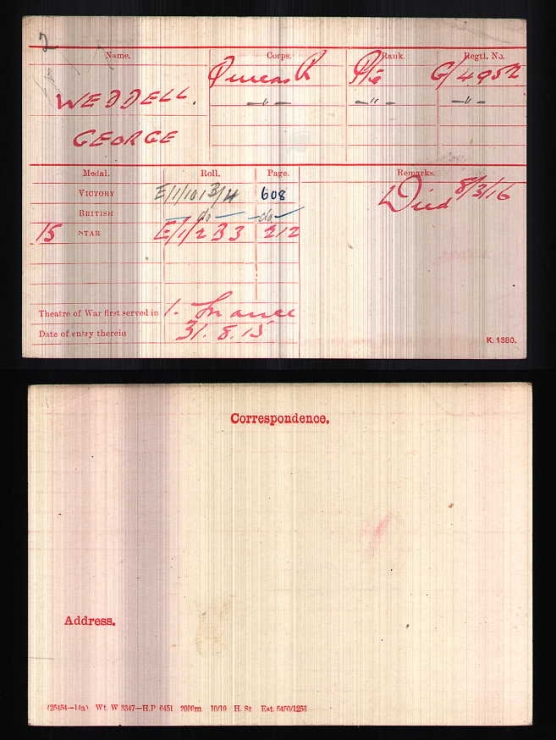 2
Name. Corps. Rank. Regtl. No.
Queens R Pte G/4952
WEDDELL. —"— —"— —"—
GEORGE
Medal. Roll. Page. Remarks.
VICTORY E/1/101B/4 608 Died 8/3/16
BRITISH —do— —do—
15 STAR E/1/2B3 212
Theatre of War first served in 1. France
Date of entry therein 31.8.15
K. 1380.
Correspondence.
Address.
Wt. W 3347—H.P. 6451 10/19 H. St